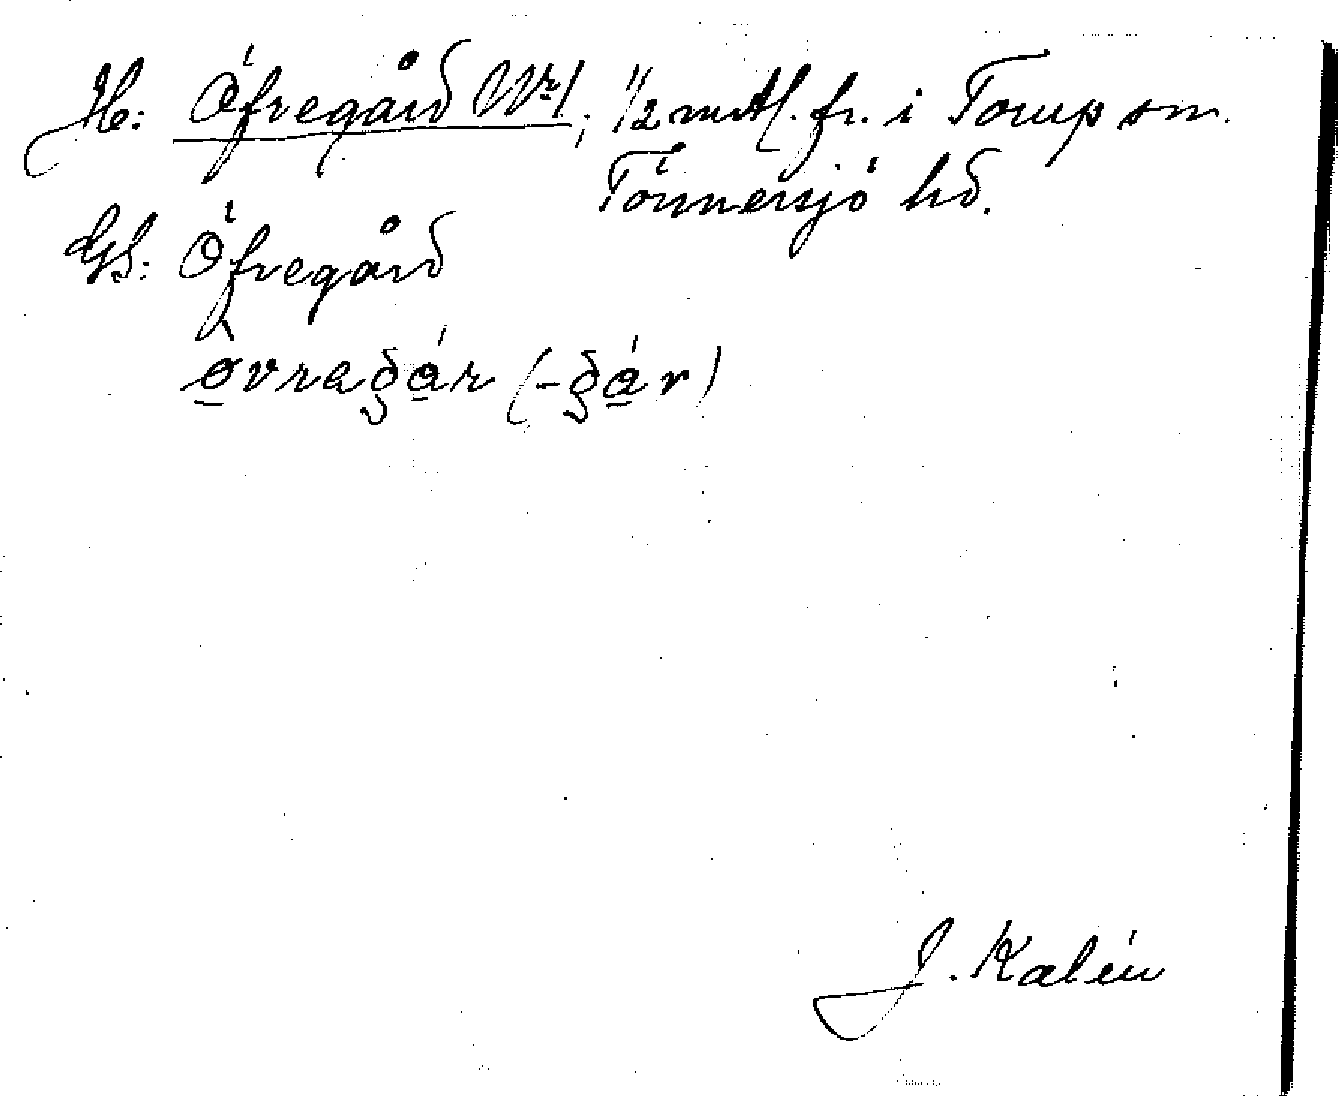 H: Öfregård Nr 1; 1/2 mtl. fr. i Torup sn.
Tönnersjö hd.
GS: Öfregård
ovragár (-gár)
J. Kalén